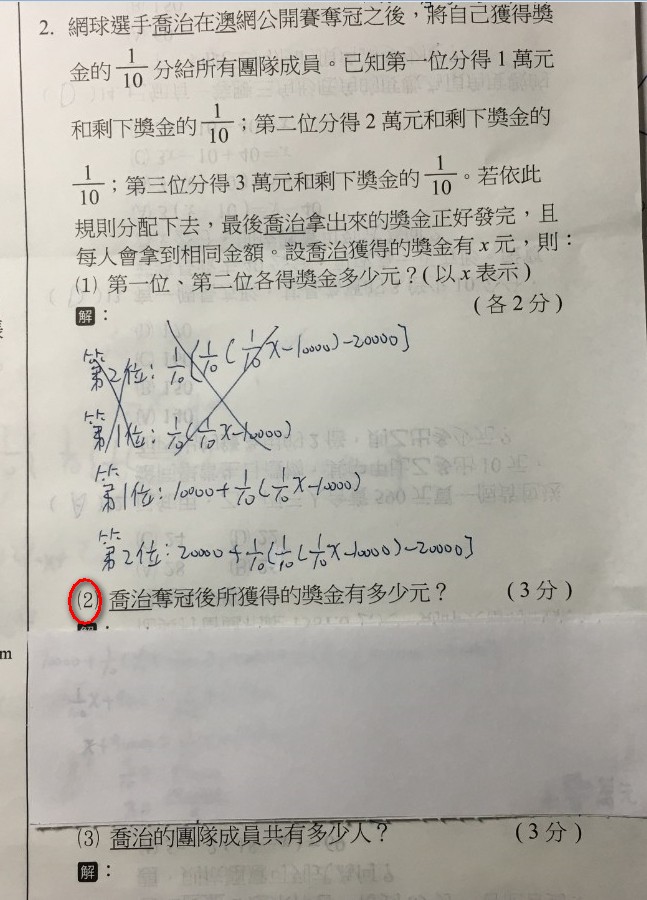 2. 網球選手喬治在澳網公開賽奪冠之後，將自己獲得獎
金的 1/10 分給所有團隊成員。已知第一位分得 1 萬元
和剩下獎金的 1/10；第二位分得 2 萬元和剩下獎金的
1/10；第三位分得 3 萬元和剩下獎金的 1/10。若依此
規則分配下去，最後喬治拿出來的獎金正好發完，且
每人會拿到相同金額。設喬治獲得的獎金有 x 元，則：
⑴ 第一位、第二位各得獎金多少元？( 以 x 表示 )
( 各 2 分 )
解：
第2位: 1/10[1/10(1/10x-10000)-20000]
第1位: 1/10(1/10x-10000)
第1位: 10000+1/10(1/10x-10000)
第2位: 20000+1/10(1/10(1/10x-10000)-20000]
⑵ 喬治奪冠後所獲得的獎金有多少元？ ( 3 分 )
m
⑶ 喬治的團隊成員共有多少人？ ( 3 分 )
解：